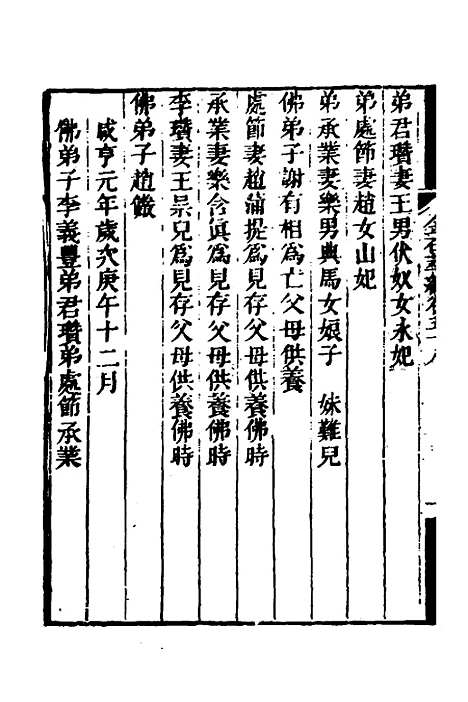 弟君瓚妻王男伏奴女永妃
弟處節妻趙女山妃
弟承業妻樂男典馬女娘子　妹難兒
佛弟子謝有相為亡父母供養
處節妻趙蒲提為見存父母供養佛時
承業妻樂含真為見存父母供養佛時
李瓚妻王杲兒為見存父母供養佛時
佛弟子趙
咸亨元年歲次庚午十二月
佛弟子李義豐弟君瓚弟處節承業